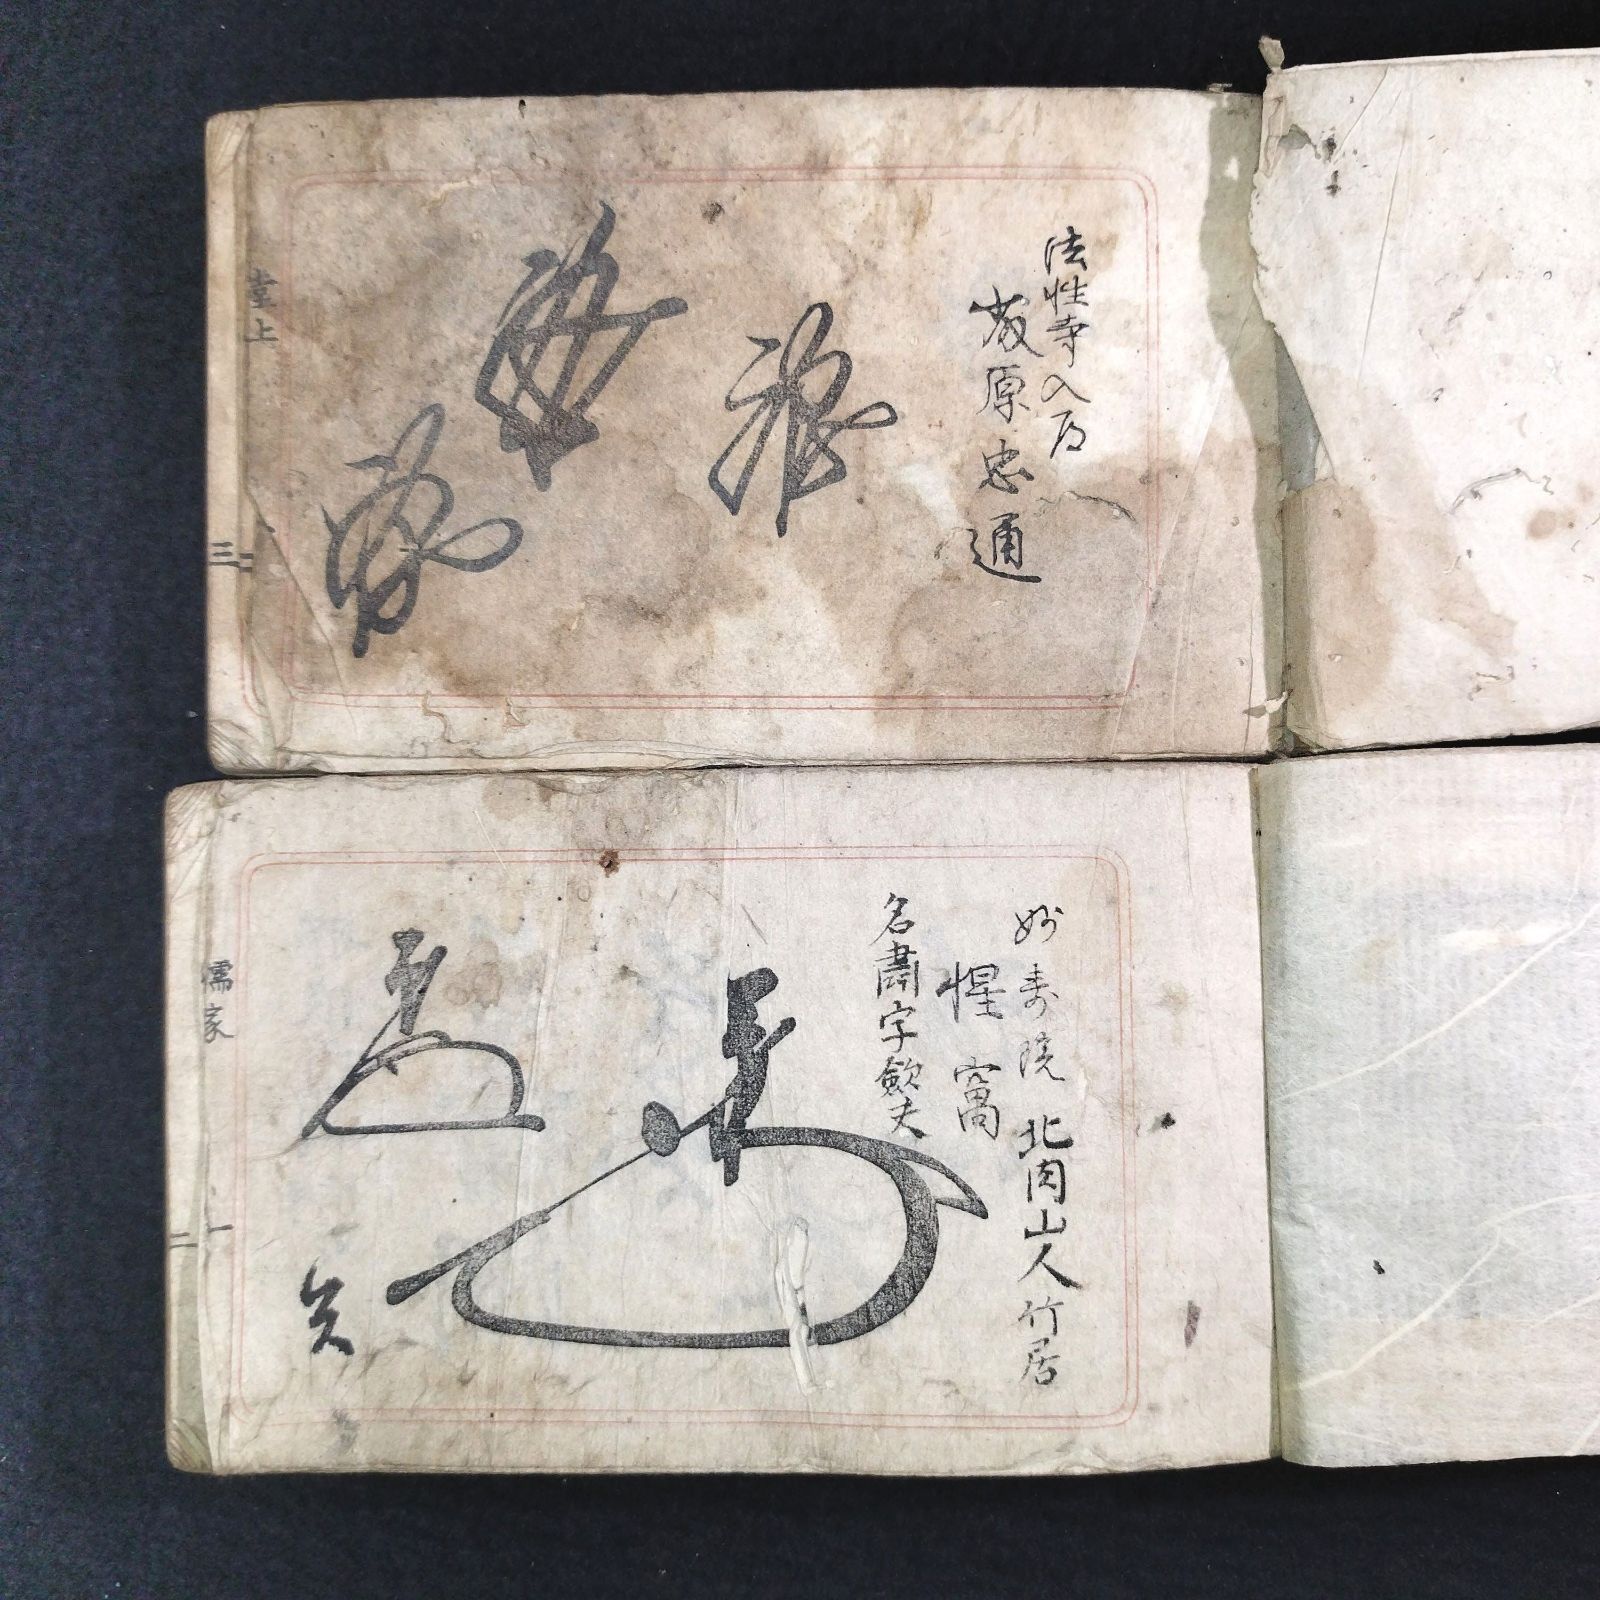 法性寺入道
藤原忠通
堂上
三
二
妙寿院 北肉山人 竹居
惺窩
名肅字歛夫
儒家
一
二